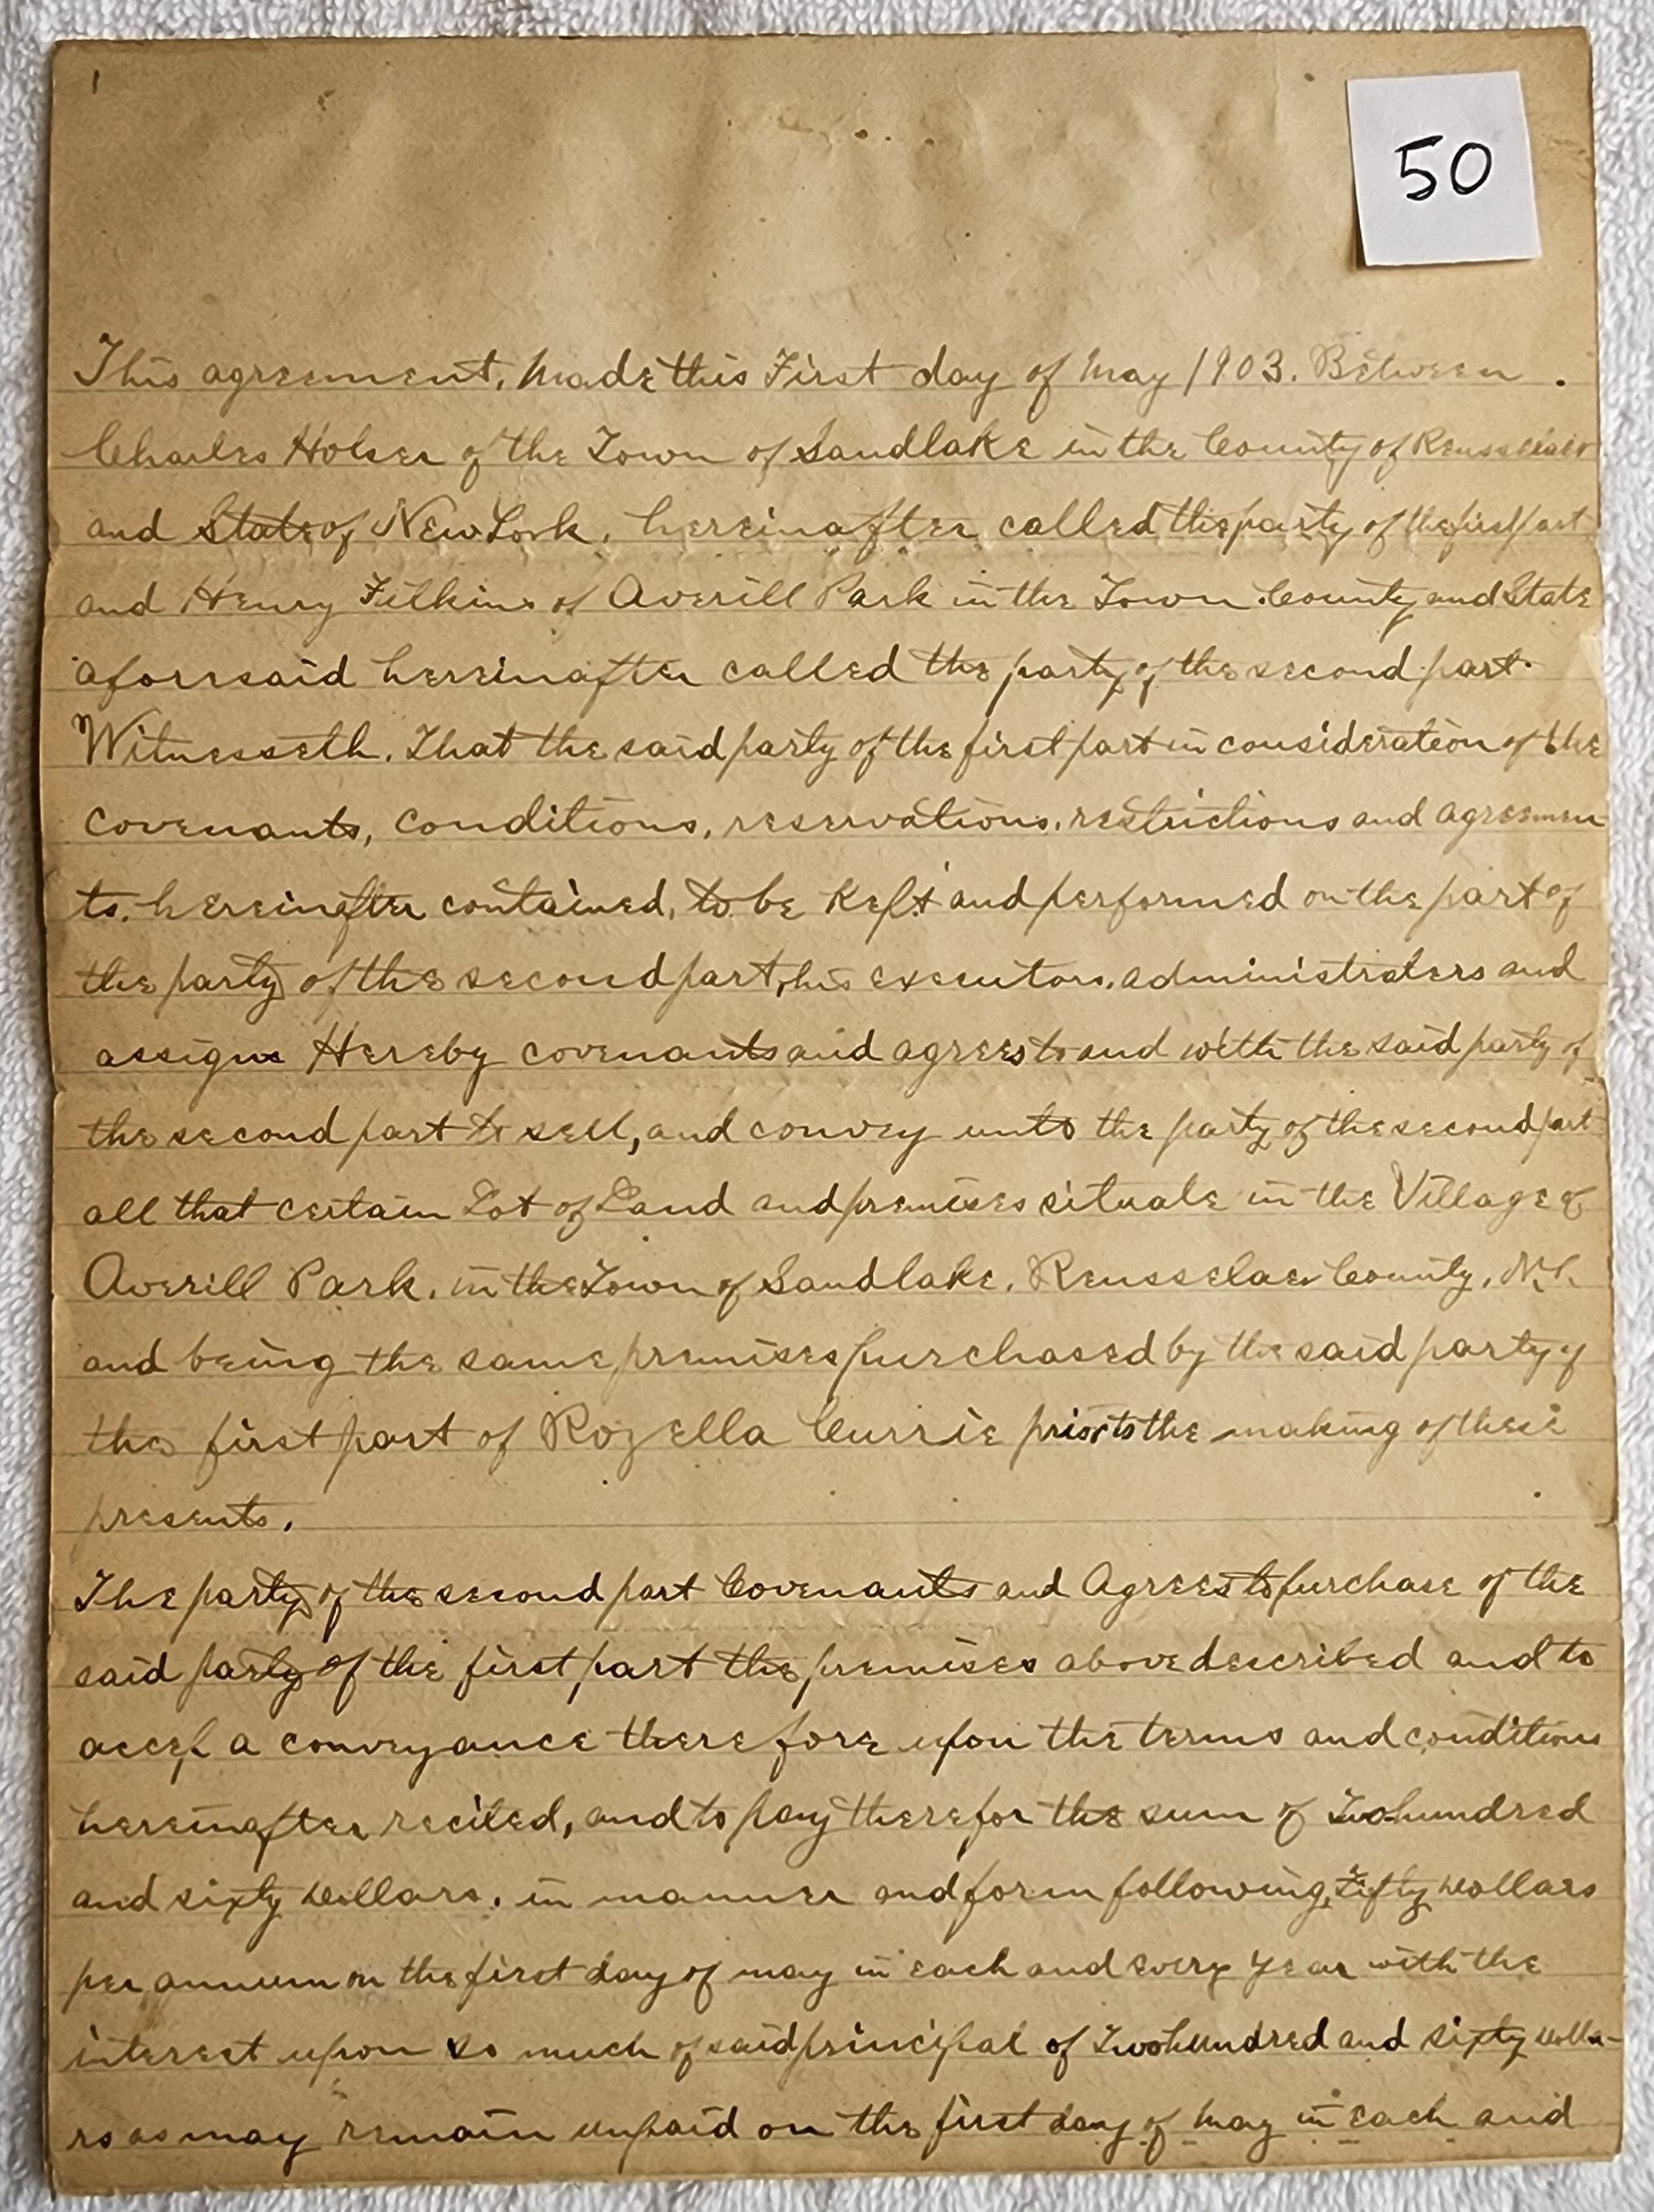 1
50
This agreement, Made this First day of May 1903. Between.
Charles Holser of the Town of Sandlake in the County of Rensselaer
and State of New York, hereinafter called the party of the first part
and Henry Filkins of Averill Park in the Town County and State
aforesaid hereinafter called the party of the second part.
Witnesseth. That the said party of the first part in consideration of the
covenants, conditions, reservations, restrictions and agreemen
ts. hereinafter contained, to be Kept and performed on the part of
the party of the second part, his executors, administraters and
assigns Hereby covenants and agrees to and with the said party of
the second part to sell, and convey unto the party of the second part
all that certain Lot of Land and premises situate in the Village of
Averill Park, in the Town of Sandlake, Rensselaer County, N.Y.
and being the same premises purchased by the said party of
the first part of Rozella Currie prior to the making of these
presents.
The party of the second part Covenants and Agrees to purchase of the
said party of the first part the premises above described and to
accep a conveyance therefore upon the terms and conditions
hereinafter recited, and to pay therefor the sum of Two hundred
and sixty Dollars, in manner and form following, Fifty Dollars
per annum on the first day of may in each and every year with the
interest upon so much of said principal of Two hundred and sixty Dolla-
rs as may remain unpaid on the first day of May in each and